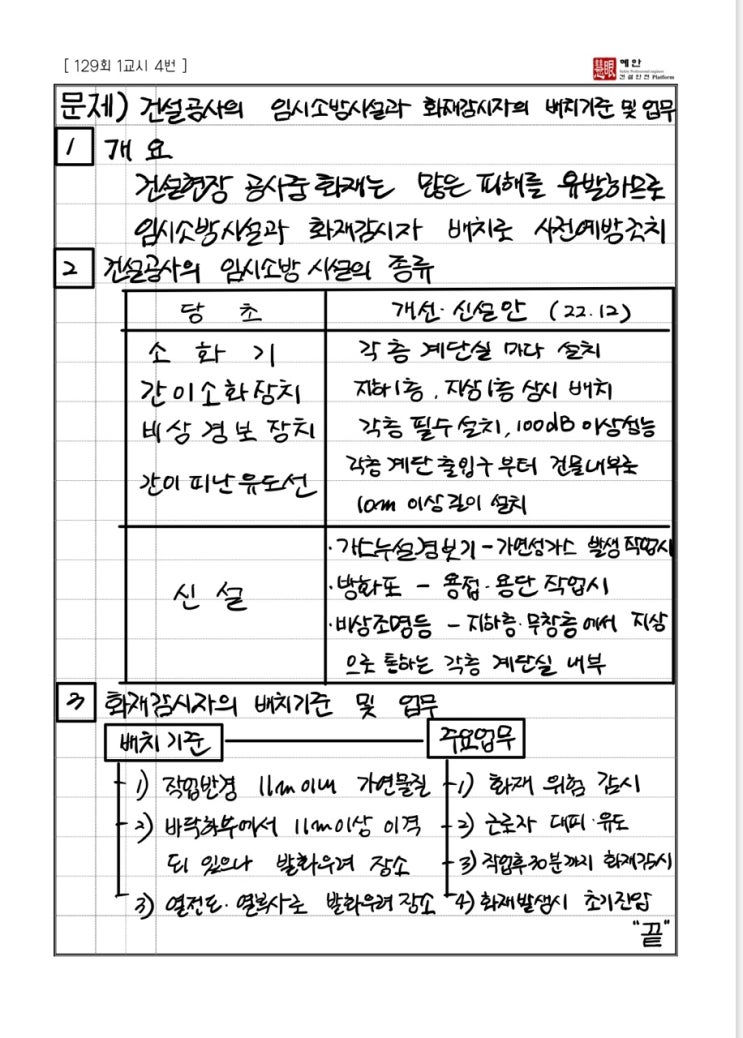 [ 129회 1교시 4번 ]
慧眼 혜안
건설안전 Platform
문제) 건설공사의 임시소방시설과 화재감시자의 배치기준 및 업무
1 개요
건설현장 공사중 화재는 많은 피해를 유발하므로
임시소방시설과 화재감시자 배치로 사전예방조치
2 건설공사의 임시소방 시설의 종류
당초 개선·신설안 (22.12)
소화기 각 층 계단실 마다 설치
간이소화장치 지하1층, 지상1층 상시 배치
비상경보장치 각층 필수 설치, 100dB 이상성능
간이 피난유도선 각층 계단 출입구 부터 건물내부로
10m 이상길이 설치
신설
·가스누설경보기 - 가연성가스 발생작업시
·방화포 - 용접·용단 작업시
·비상조명등 - 지하층·무창층에서 지상
으로 통하는 각층 계단실 내부
3 화재감시자의 배치기준 및 업무
배치기준 주요업무
1) 작업반경 11m이내 가연물질 1) 화재 위험 감시
2) 바닥하부에서 11m이상 이격 2) 근로자 대피·유도
되 있으나 발화우려 장소 3) 작업후30분까지 화재감시
3) 열전도·열복사로 발화우려 장소 4) 화재발생시 초기진압
"끝"